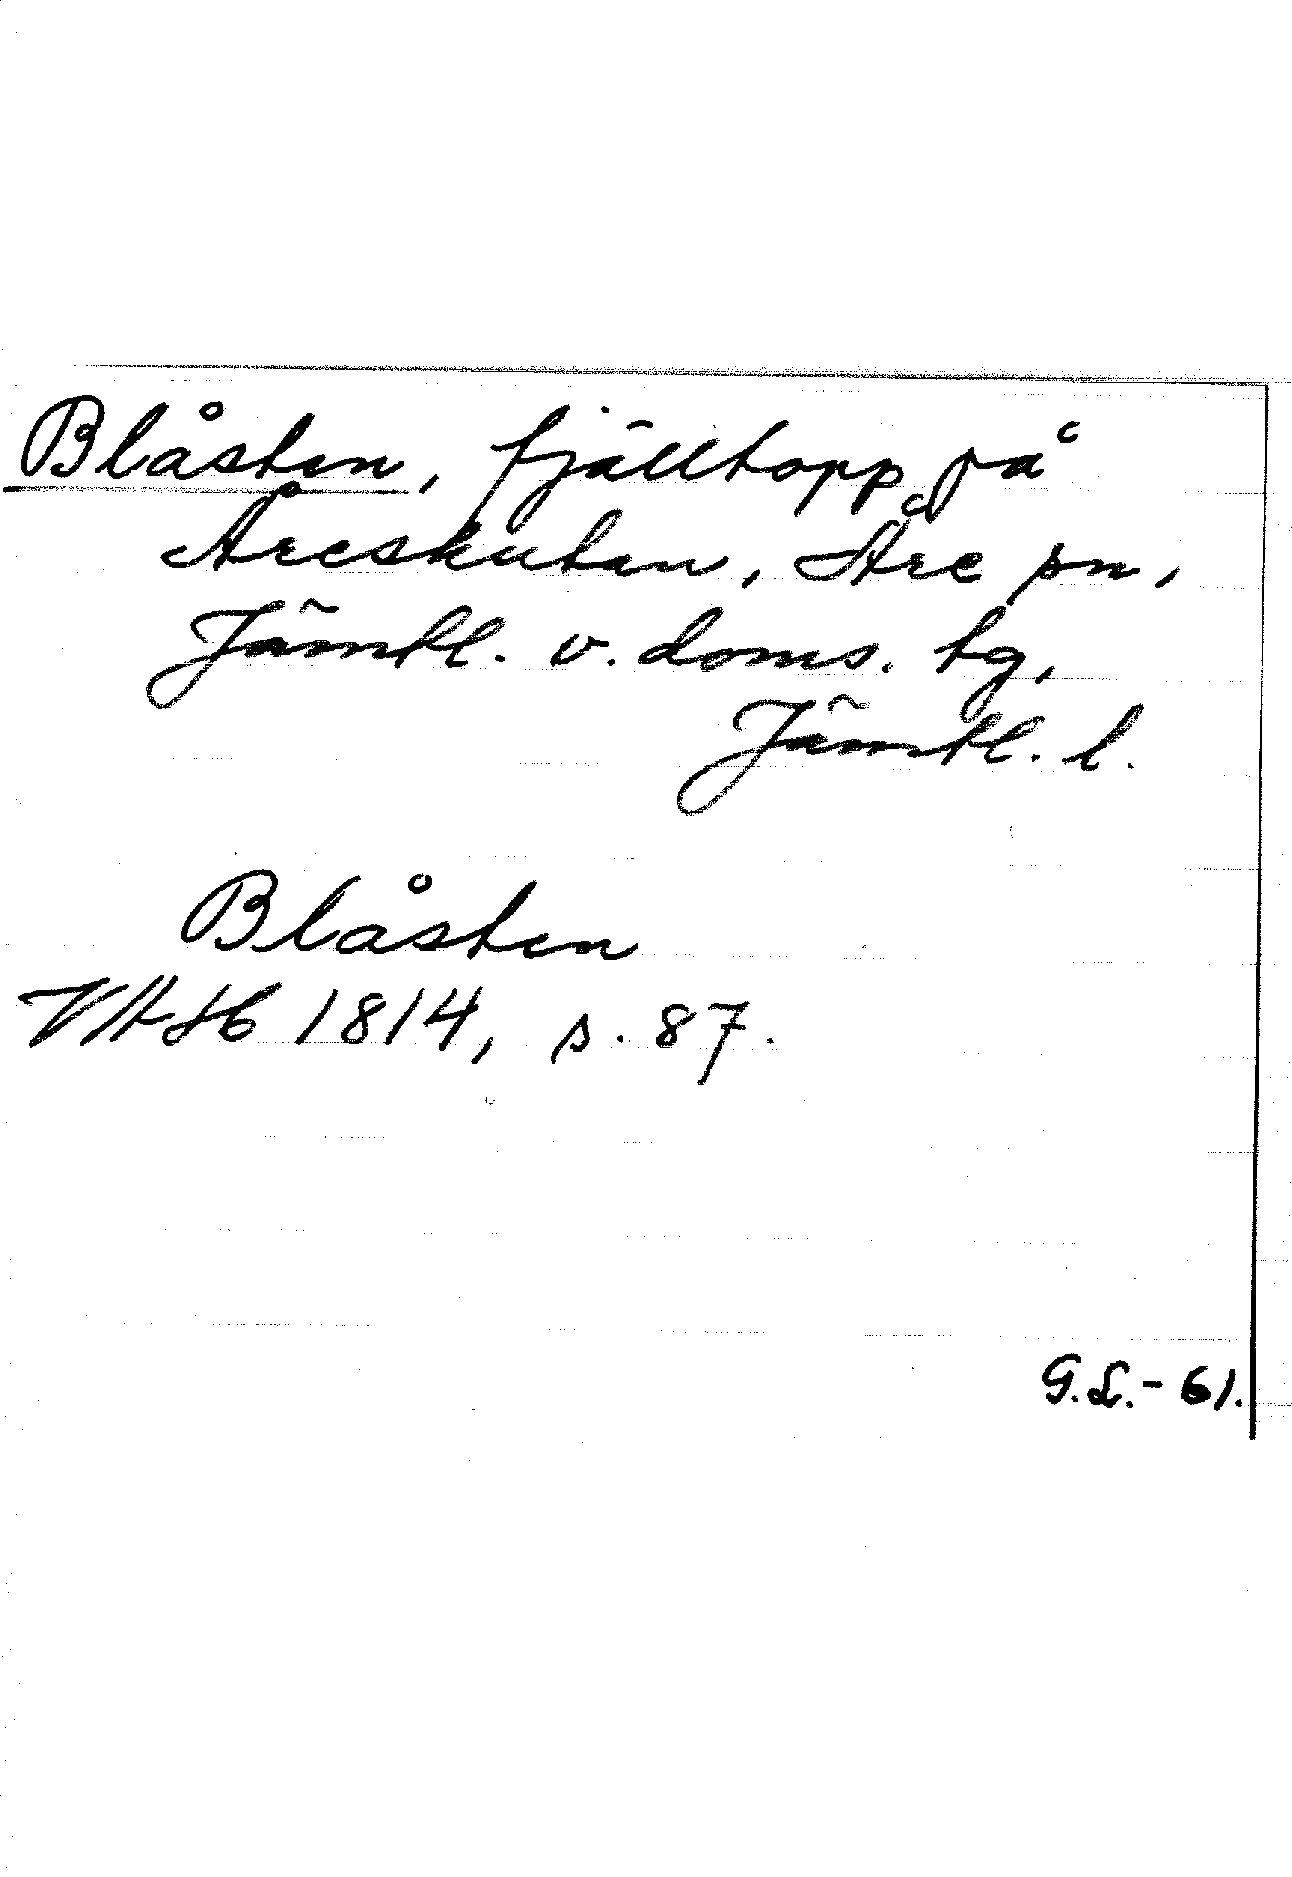 Blåsten, fjälltopp på
Åreskutan, Åre sn,
Jämtl. v. doms. tg,
Jämtl. l.
Blåsten
VAH 1814, s. 87.
G.L.- 61.